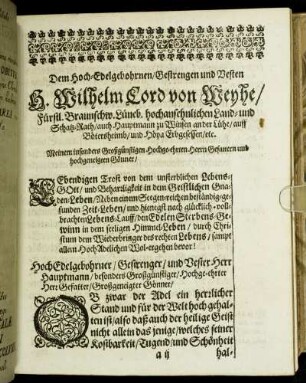 Dem Hoch-Edelgebohrnen/Gestrengen und Vesten
H. Wilhelm Cord von Weyhe/
Fürstl. Braunschw. Lüneb. hochansehnlichen Land- und
Schatz-Rath/ auch Hauptmann zu Winsen an der Lühe/ auff
Bötersheimb/ und Erbgesessen/etc.
Meinem insonders Großgünstigen Hochge-ehrten Herrn Gefattern und
hochgeneigten Gönner/
LEbendigen Trost von dem unsterblichen Lebens-
GOtt/ und Beharrligkeit in dem Geistlichen Gna-
den Leben/ Neben einem Segen-reichen beständig-ge-
sunden Zeit-Leben/ und hiernegst nach glücklich-voll-
brachten Lebens-Lauff/ den Edelen Sterbens-Ge-
winn in dem seeligen Himmel-Leben/ durch Chri-
stum dem Wiederbringer des rechten Lebens/ sampt
allem Hoch-Adelichen Wol-ergehen bevor!
HochEdelgebohrner/ Gestrenger/ und Vester Herr
Hauptmann/ besonders Großgünstiger/ Hochge-ehrter
Herr Gefatter/ Großgeneigter Gönner/
OB zwar der Adel ein herrlicher
Stand und für der Welt hoch gehal-
ten ist/ also daß auch der heilige Geist
nicht allein das jenige/ welches seiner
Kostbarkeit/ Tugend/ und Schönheit
a ij
hal-